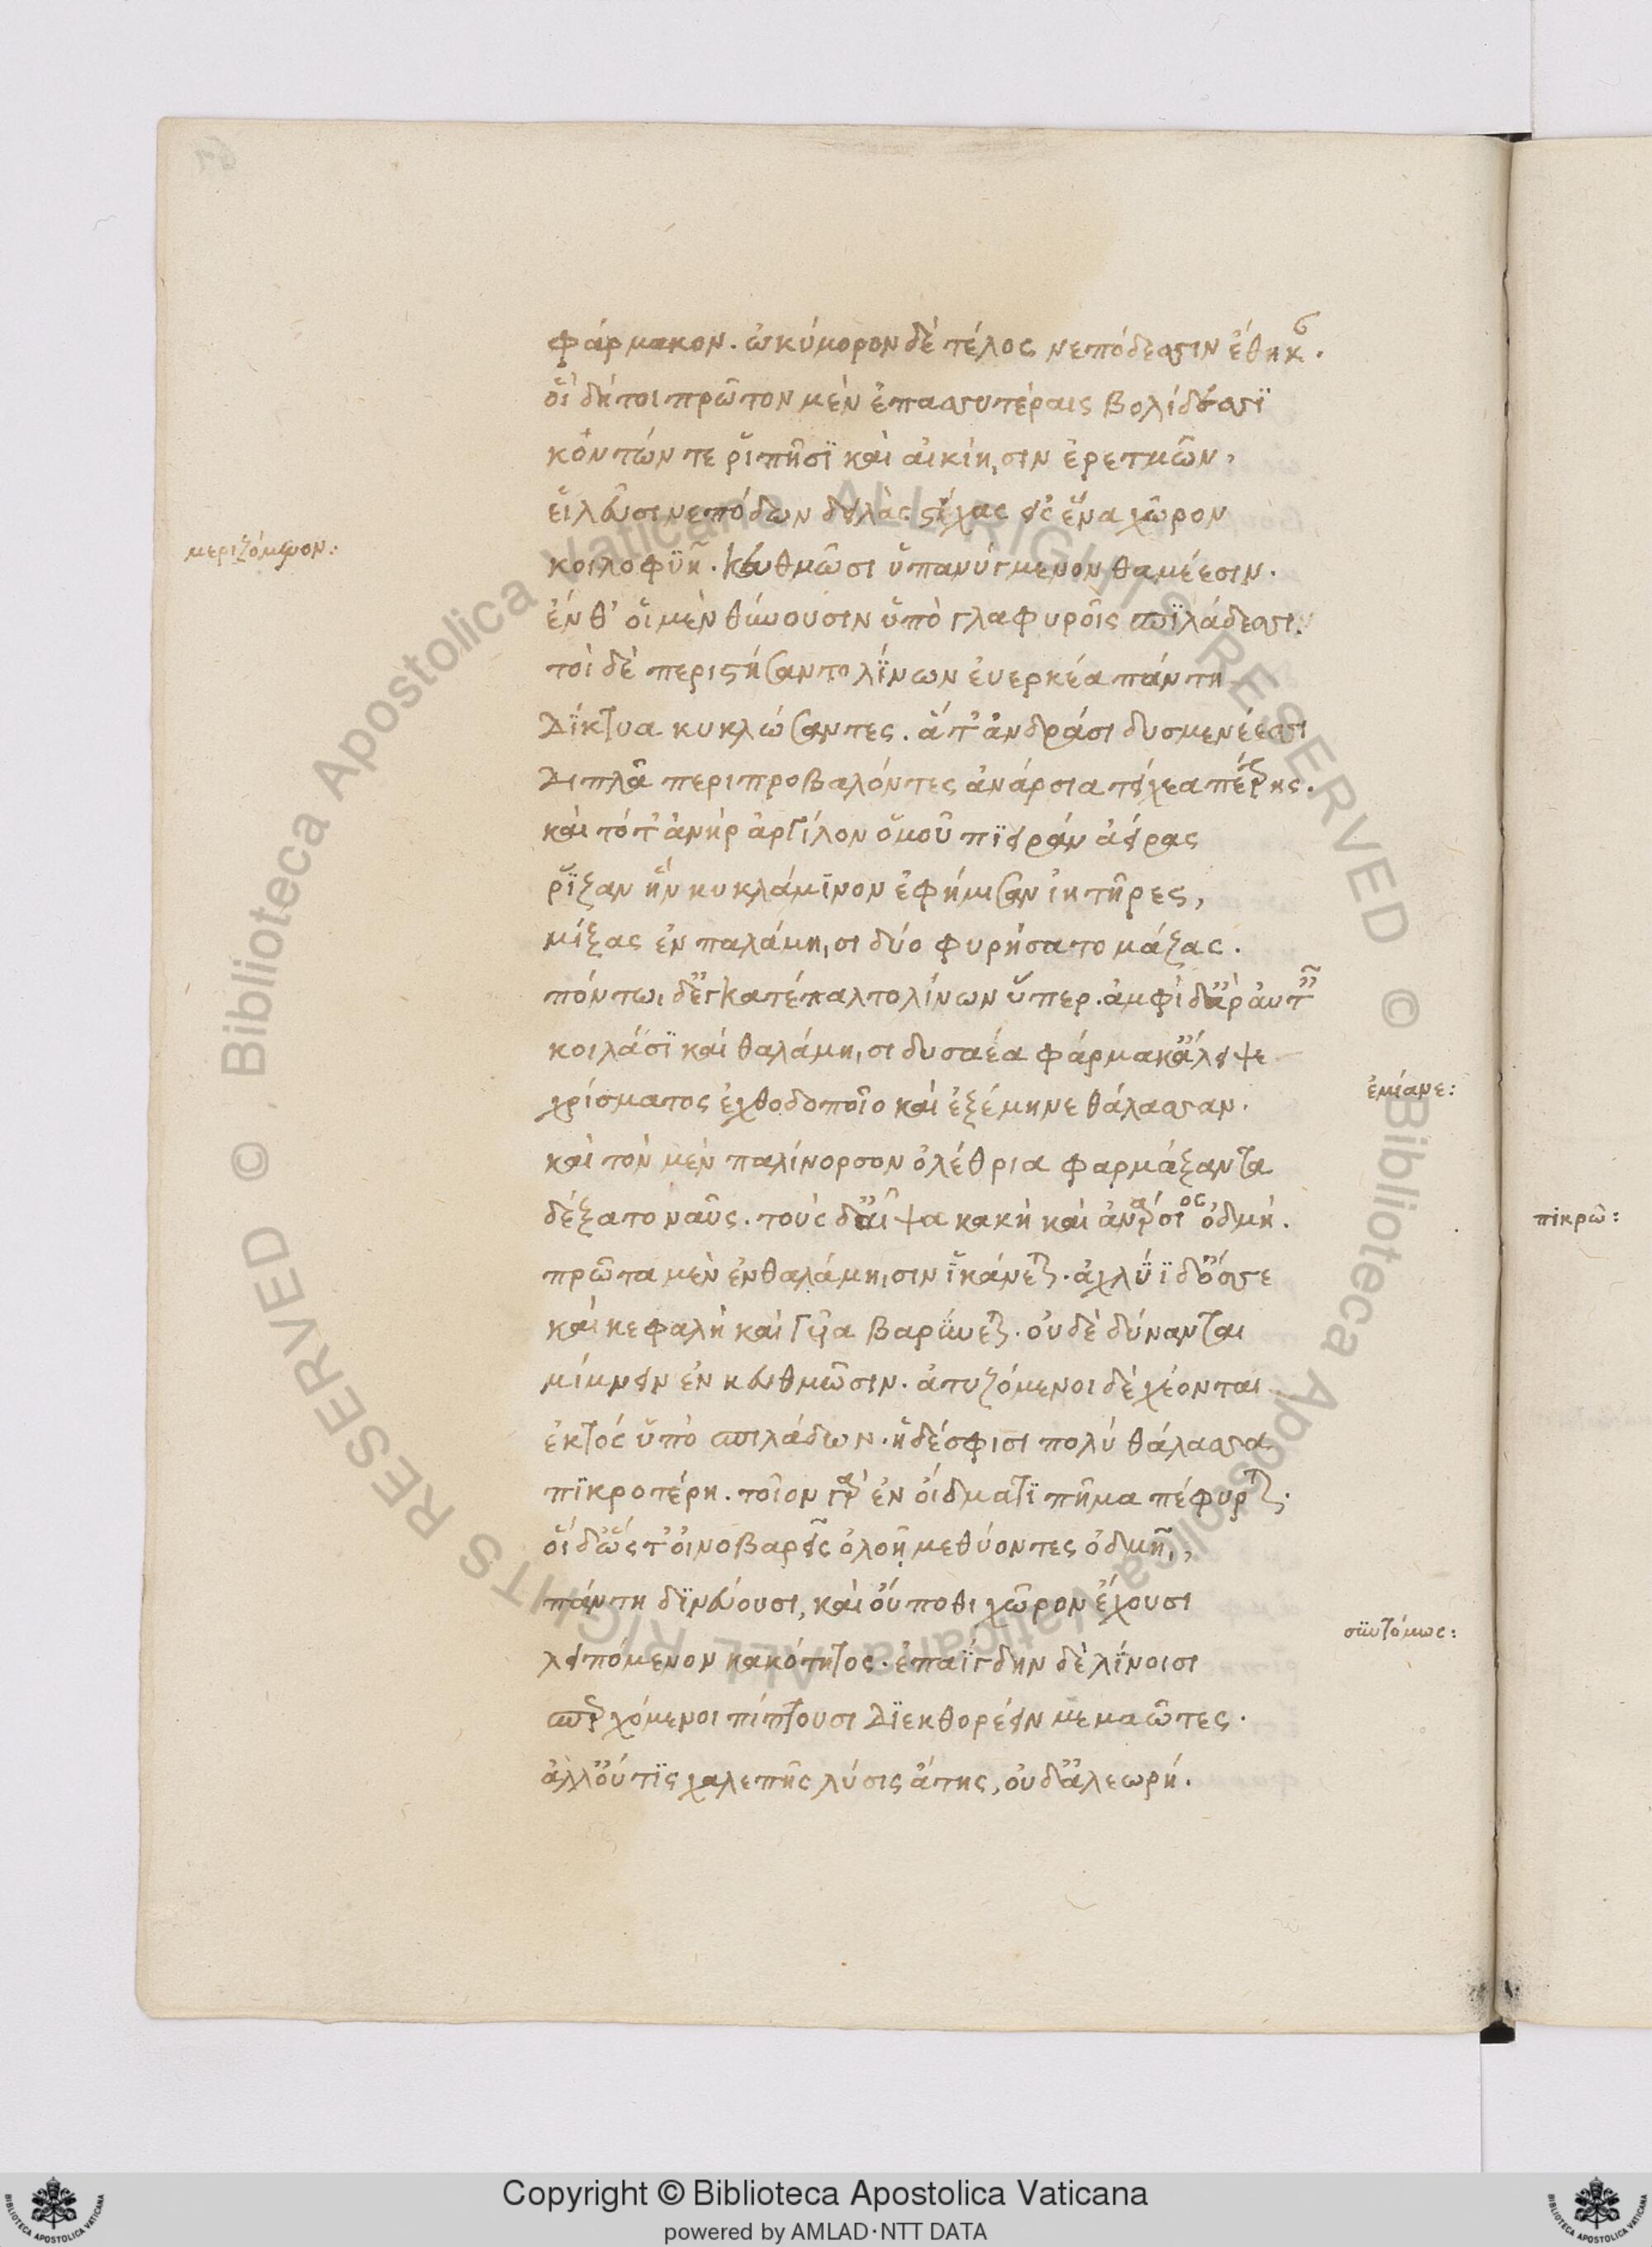 φάρμακον. ὠκύμορον δὲ τέλος νεπόδεσσιν ἔθηκε.
οἵ δή τοι πρῶτον μὲν ἐπασσυτέραις βολίδεσσϊ
κόντων τε ῥιπῆσϊ καὶ αἰκίηισιν ἐρετμῶν,
εἰλεῦσι νεπόδων δειλὰς στίχας εἰς ἕνα χῶρον
μεριζόμενον:
κοιλοφϋῆ. κευθμῶσι ὑπανύγμενον θαμέεσιν.
ἔνθ' οἱ μὲν θύνουσιν ὑπὸ γλαφυροῖς σπϊλάδεσσι.
τοὶ δὲ περιστήσαντο λΐνων ἐυερκέα πάντη
Δΐκτυα κυκλώσαντες. ἅτ' ἀνδράσι δυσμενέεσσι
Διπλᾶ περιπροβαλόντες ἀνάρσια τείχεα πέτρης.
καὶ τότ' ἀνὴρ ἀργίλον ὁμοῦ πϊειρὰν ἀείρας
ῥΐζαν ἣν κυκλάμϊνον ἐφήμισαν ἰητῆρες,
μίξας ἐν παλάμηισι δύο φυρήσατο μάζας.
πόντωι δ' ἐγκατέπαλτο λίνων ὕπερ. ἀμφὶ δ' ἄρ' αὐτὰς
κοιλάσϊ καὶ θαλάμηισι δυσαέα φάρμακ' ἄλειψε
ἐμίανε:
χρίσματος ἐχθοδοποῖο καὶ ἐξέμηνε θάλασσαν.
καὶ τὸν μὲν παλίνορσον ὀλέθρια φαρμάξαντα
δέξατο ναῦς. τοὺς δ' αἶψα κακὴ καὶ ἀνάρσιος ὀδμή.
πικρῶ:
πρῶτα μὲν ἐν θαλάμηισιν ἱκάνεται. ἀχλύϊ δ' ὄσσε
καὶ κεφαλὴ καὶ γυῖα βαρύνεται. οὐδὲ δύνανται
μίμνειν ἐν κευθμῶσιν. ἀτυζόμενοι δὲ χέονται
ἐκτὸς ὑπὸ σπιλάδων. ἡ δέ σφισι πολὺ θάλασσα
πϊκροτέρη. τοῖον γὰρ ἐν οἴδματϊ πῆμα πέφυρται.
οἵ δ' ὥς τ' οἰνοβαρεῖς ὀλοῆι μεθύοντες ὀδμῆι,
πάντη δϊνεύουσι, καὶ οὔποθι χῶρον ἔχουσι
συντόμως:
λειπόμενον κακότητος. ἐπαΐγδην δὲ λΐνοισι
σπερχόμενοι πίπτουσι Δϊεκθορέειν μεμαῶτες.
ἀλλ' οὔτϊς χαλεπῆς λύσις ἄτης, οὐδ' ἀλεωρή.
Copyright © Biblioteca Apostolica Vaticana
powered by AMLAD·NTT DATA